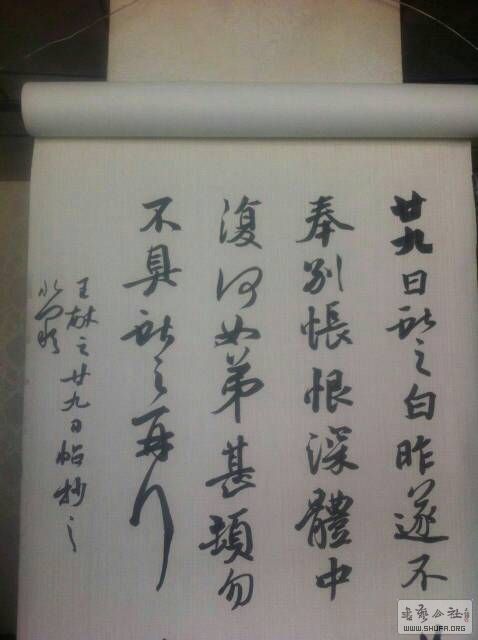 廿九日献之白昨遂不
奉别悵恨深體中
復何如弟甚頓勿
不具献之再拜
王献之廿九日帖抄之
书艺公社
WWW.SHUFA.ORG